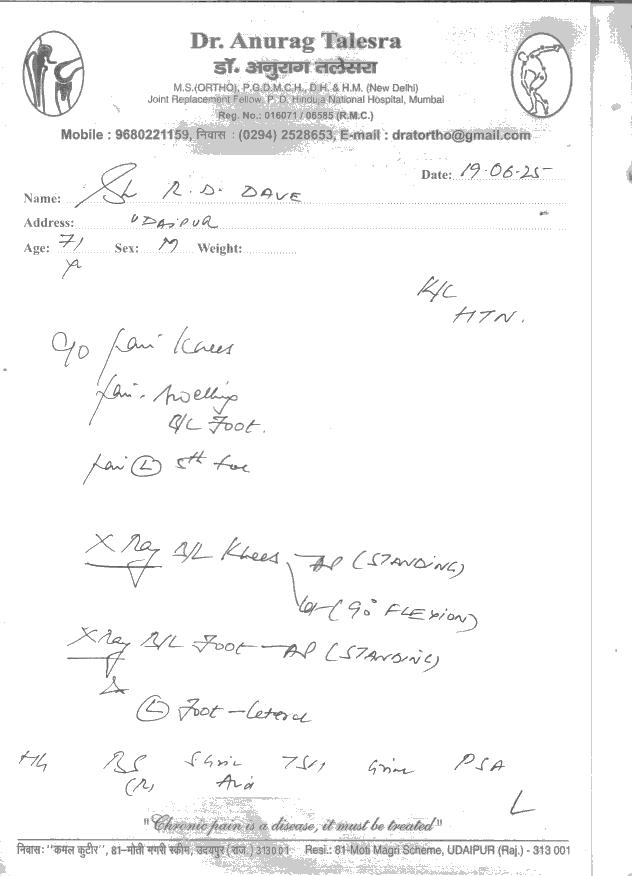 Dr. Anurag Talesra
डॉ. अनुराग तलेसरा
M.S.(ORTHO), P.G.D.M.C.H., D.H. & H.M. (New Delhi)
Joint Replacement Fellow, P. D. Hinduja National Hospital, Mumbai
Reg. No.: 016071 / 06585 (R.M.C.)
Mobile : 9680221159, निवास : (0294) 2528653, E-mail : dratortho@gmail.com
Date: 19-06-25
Name: Sh R.D. DAVE
Address: UDAIPUR
Age: 71 Sex: M Weight:
K/C
HTN.
C/O pain Knees
pain. swelling
B/L Foot.
pain (L) 5th toe
X Ray B/L Knees AP (STANDING)
Lat (90° FLEXION)
X Ray B/L Foot AP (STANDING)
(L) Foot - Lateral
Hb BS S Uric TSH Urine PSA
(R) Acid
"Chronic pain is a disease, it must be treated"
निवास: "कमल कुटीर", 81-मोती मगरी स्कीम, उदयपुर (राज.) 313001 Resi.: 81-Moti Magri Scheme, UDAIPUR (Raj.) - 313 001